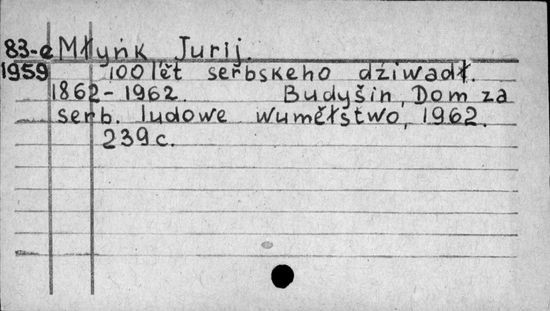 83-e Młyńk Jurij.
1959 100 lět serbskeho dźiwadł.
1862-1962. Budyšin, Dom za
serb. ludowe wuměłstwo, 1962.
239 c.